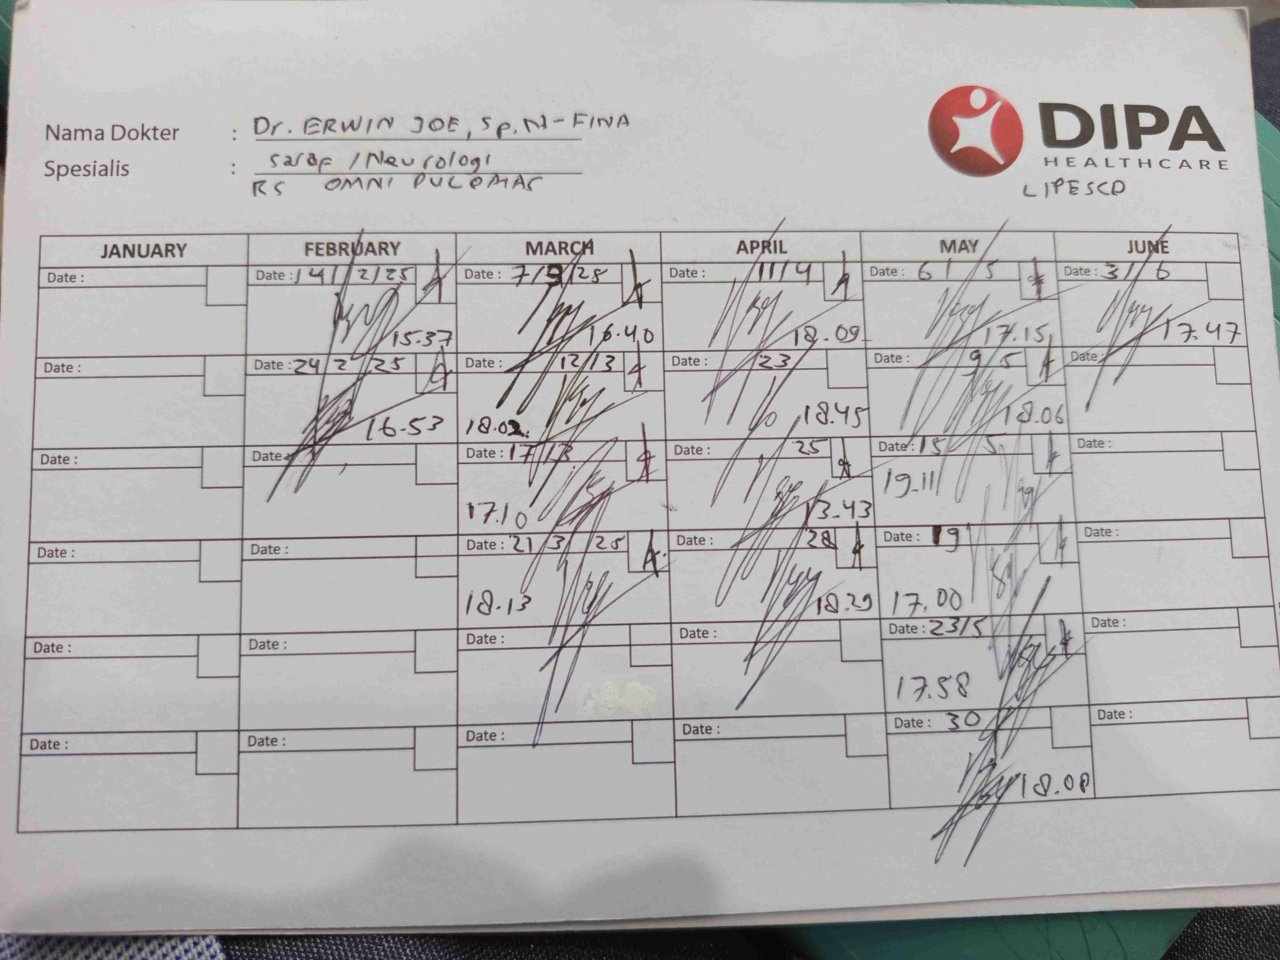 DIPA
HEALTHCARE
LIPESCO
Nama Dokter : Dr. ERWIN JOE, Sp.N-FINA
Spesialis : Saraf /Neurologi
RS OMNI PULOMAS
JANUARY FEBRUARY MARCH APRIL MAY JUNE
Date : Date : 14/2/25 Date : 7/3/25 Date : 11/4 Date : 6/5 Date : 3/6
15.37 16.40 18.09 17.15 17.47
Date : Date : 24 2 25 Date : 12/3 Date : 23 Date : 9/5 Date :
16.53 18.02 18.45 18.06
Date : Date : Date : 17/3 Date : 25 Date : 15 5 Date :
17.10 13.43 19.11
Date : Date : Date : 21 3 25 Date : 28 Date : 19 Date :
18.13 18.29 17.00
Date : Date : Date : Date : Date : 23/5 Date :
17.58
Date : Date : Date : Date : Date : 30 Date :
18.08